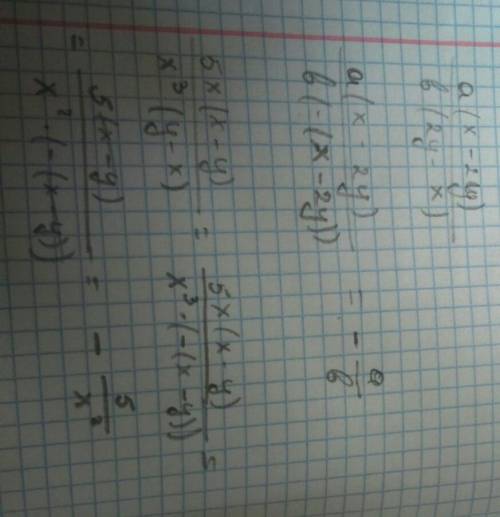 a(x - 2y) / b(2y - x)
a(x - 2y) / b(-(x - 2y)) = - a/b
5x(x - y) / x³(y - x) = 5x(x - y) / x³·(-(x - y)) =
= 5(x - y) / x²·(-(x - y)) = - 5/x²